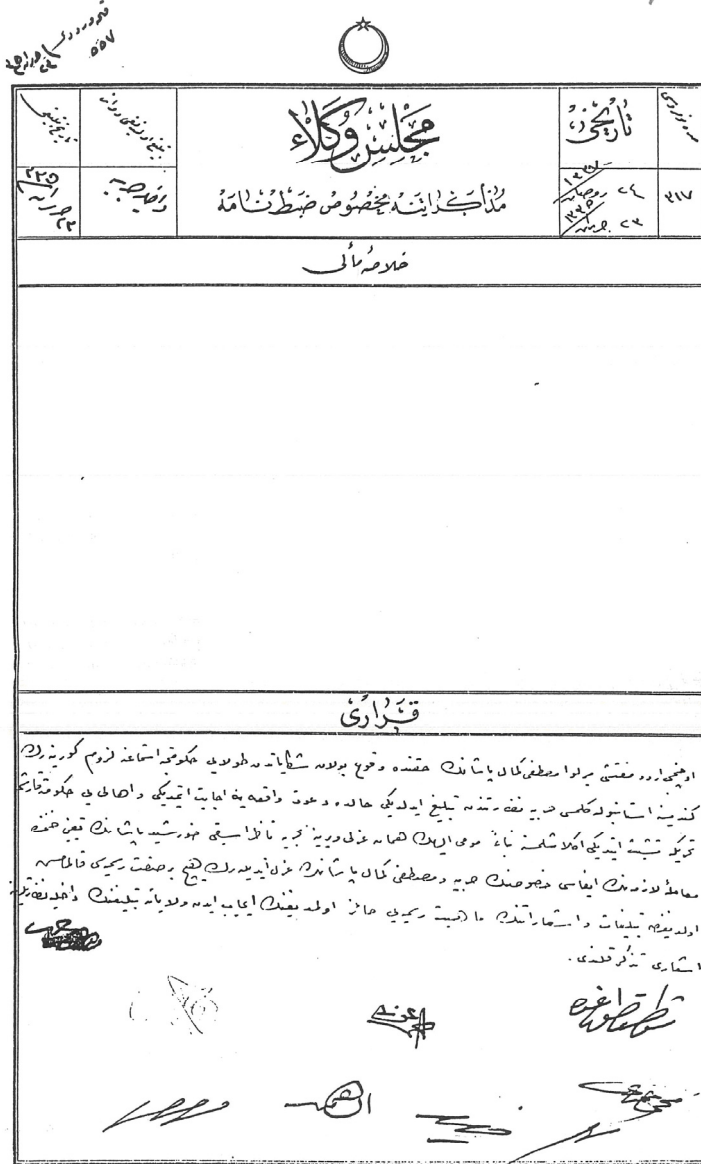 مجلس وكلاء
مذاكراتنه مخصوص ضبطنامه
تاريخى
٣١٧
٢٤ رمضان ١٣٣٧
٢٣ حزيران ١٣٣٥
داخليه حربيه
٢٣ حزيران ٣٣٥
خلاصهٔ مألى
قرارى
اوچنجى اردو مفتشى ميرلوا مصطفى كمال پاشانك حقنده وقوع بولان شكاياتدن طولايى حكومتجه استماعنه لزوم كورينه رك
كندينه استانبوله كلمسى حربيه نظارتندن تبليغ ايدلديكى حالده دعوت واقعه يه اجابت ايتمديكى و اهالى يى حكومته قارشى
تحريكه تشبث ايتديكى اكلاشلمسنه بناءً مومى اليهك همان عزلى ويرينه بحريه ناظر اسبقى خورشيد پاشانك تعيينى حقنده
معاملهٔ لازمه نك ايفاسى خصوصنك حربيه و مصطفى كمال پاشانك عزل ايديله رك هيچ بر صفت رسميه سى قالمامش
اولديغندن تبليغات و اشعاراتنك ماهيت رسميه يى حائز اولمديغنك ايجاب ايدن ولاياته تبليغنك داخليه نظارتلرينه
اشعارى تذكر قلندى.